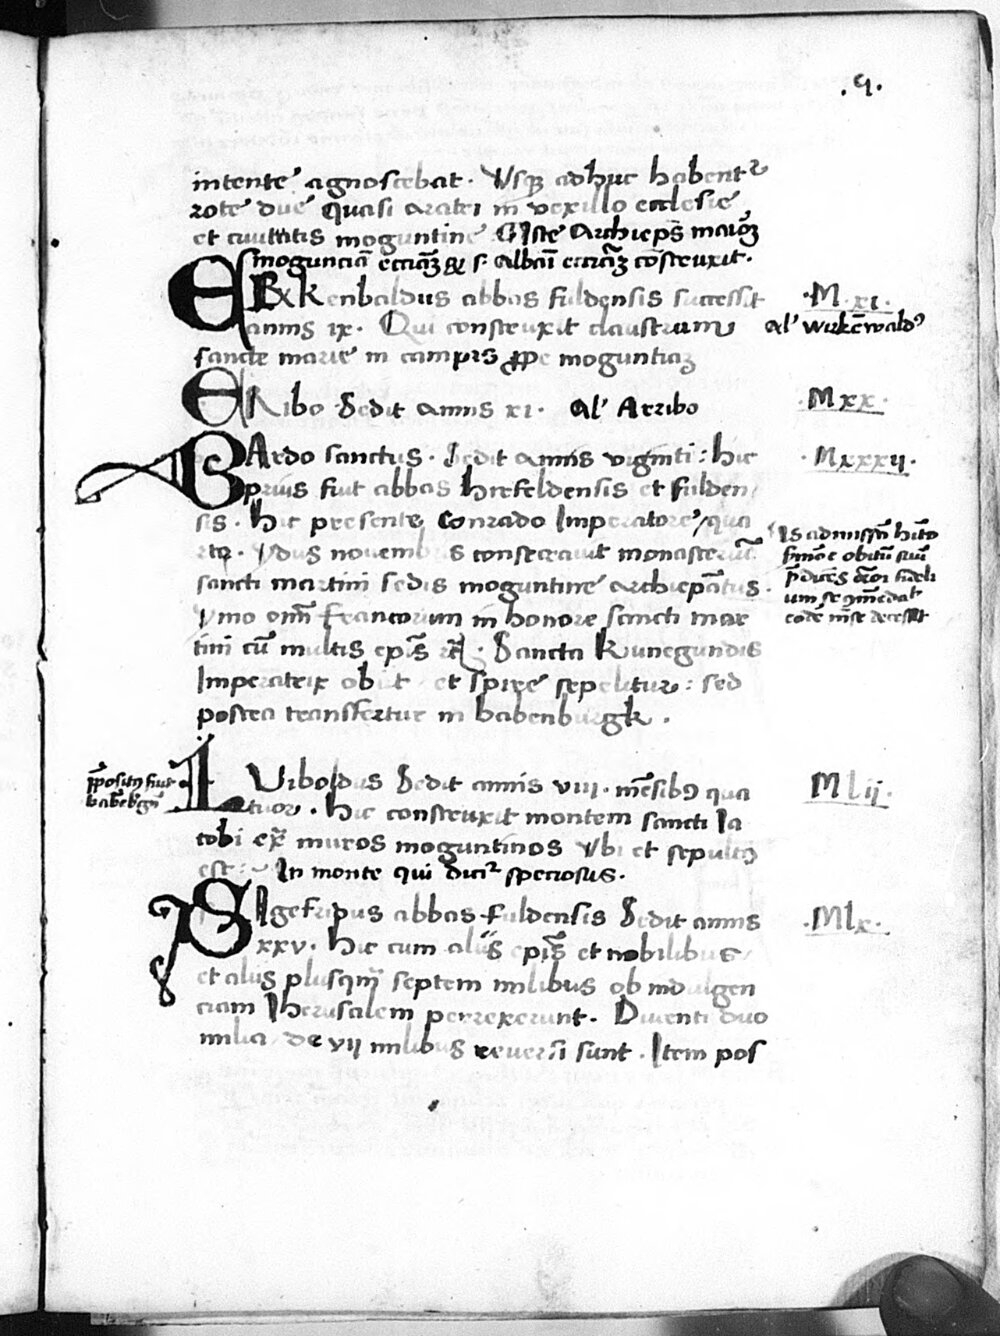 .9.
intente agnoscebat. Vsq₃ adhuc habentr
rote due quasi aratri in vexillo ecclesie
et ciuitatis moguntine Iste Archiepūs maiorē
mogunciā eccīaȝ & s. Albani eccīaȝ cōstruxit.
ERkenbaldus abbas fuldensis successit
annis ix. Qui construxit claustrum
sancte marie in campis ꝓpe moguntiaȝ
M.xi.
al' Wirkēwald9
ERibo Sedit annis xi. al' Arribo
Mxx.
BArdo sanctus. Sedit annis viginti: hic
Mxxxij.
prius fuit abbas hirsfeldensis et fulden
sis. hic presente Conrado Imperatore/qua
rto. ydus nouembris consecrauit monasteriū
sancti martini sedis moguntine archiepātus.
ymo omī francorum in honore sancti mar
tini cū multis epīs Sancta Kunegundis
Imperatrix obiit et spire sepelitur: sed
postea transfertur in babenburgk.
Is admissū
obitū suū
fideli
um se
LViboldus Sedit annis viii. mēsib9 qua
Mlij.
tuor. hic construxit montem sancti Ia
cobi ex muros moguntinos Vbi et sepult9
est: In monte qui dicit speciosus.
p̄posit9 fuit
SIgefridus abbas fuldensis Sedit annis
Mlx.
xxv. hic cum alijs epīs et nobilibus/
et alijs plusqm̄ septem milibus ob indulgen
ciam Iherusalem perrexerunt. Diuerti duo
milia/de vij milibus reuersi sunt. Item pos